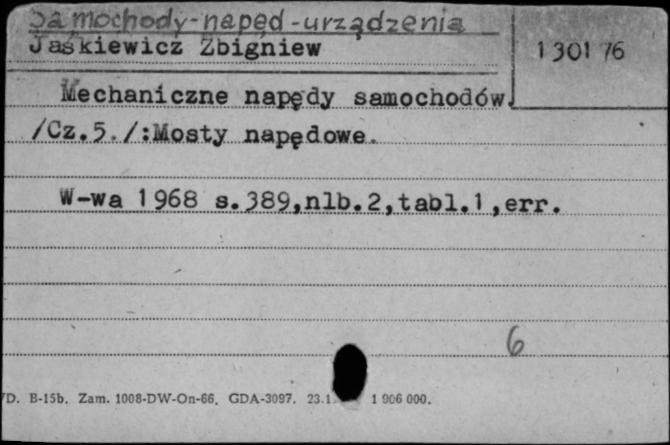 Samochody-napęd-urządzenia
Jaśkiewicz Zbigniew
130176
Mechaniczne napędy samochodów.
/Cz.5./:Mosty napędowe.
W-wa 1968 s.389,nlb.2,tabl.1,err.
6
D. B-15b. Zam. 1008-DW-On-66. GDA-3097. 23.1 1 906 000.